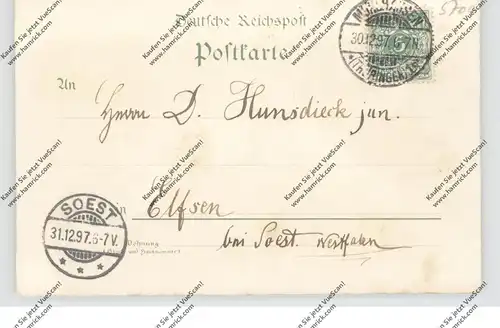 Deutsche Reichspost
Postkarte
30.12.97. 6-7N.
An
Herrn D. Hunsdieck jun.
in Elfsen
bei Soest. Westfalen
Wohnung
SOEST
31.12.97.6-7V.
Kaufen Sie jetzt VueScan!
www.hamrick.com